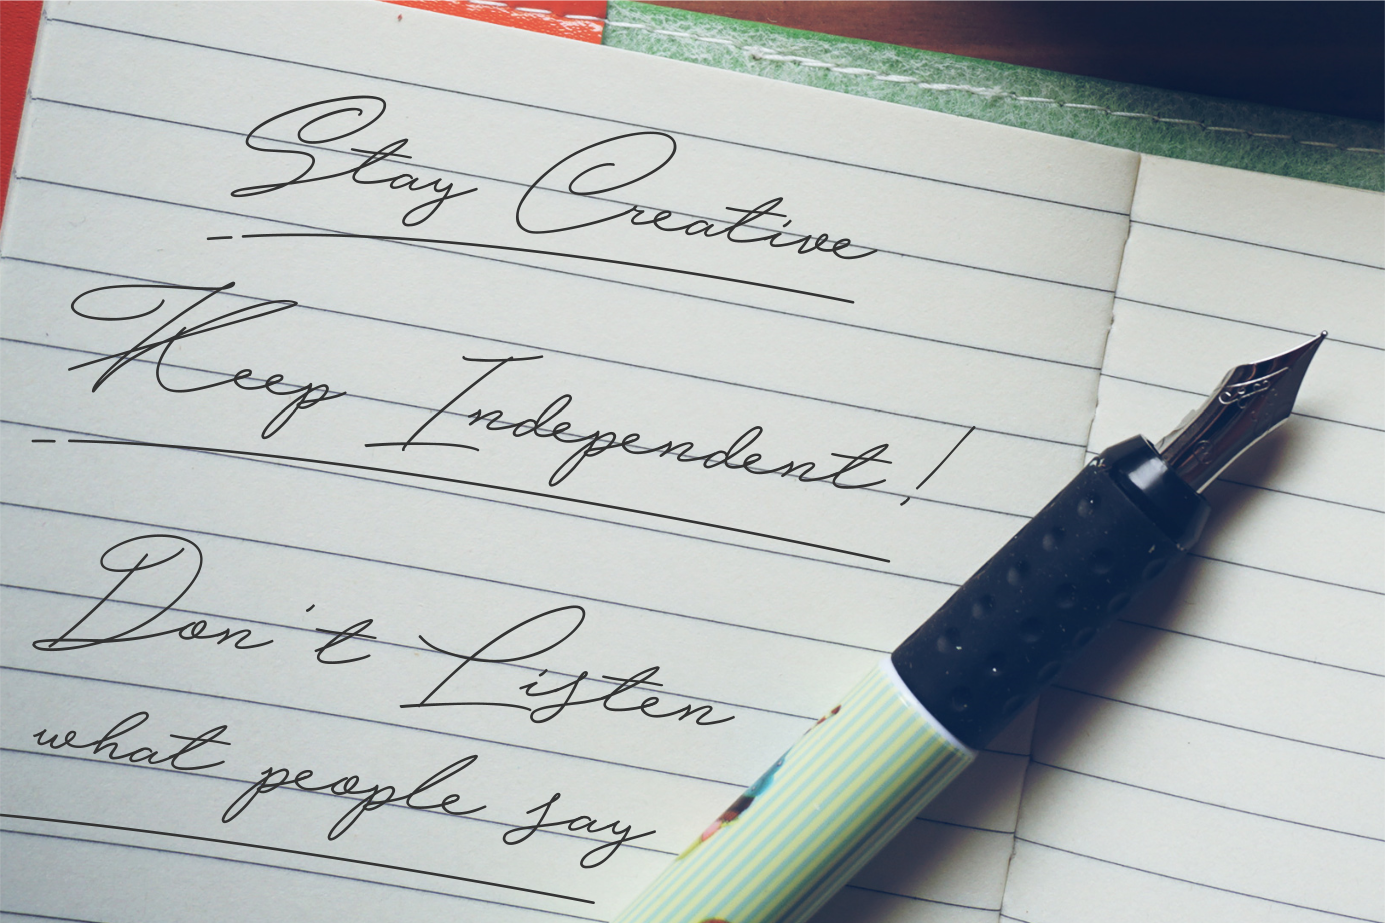 Stay Creative
Keep Independent!
Don't Listen
what people say